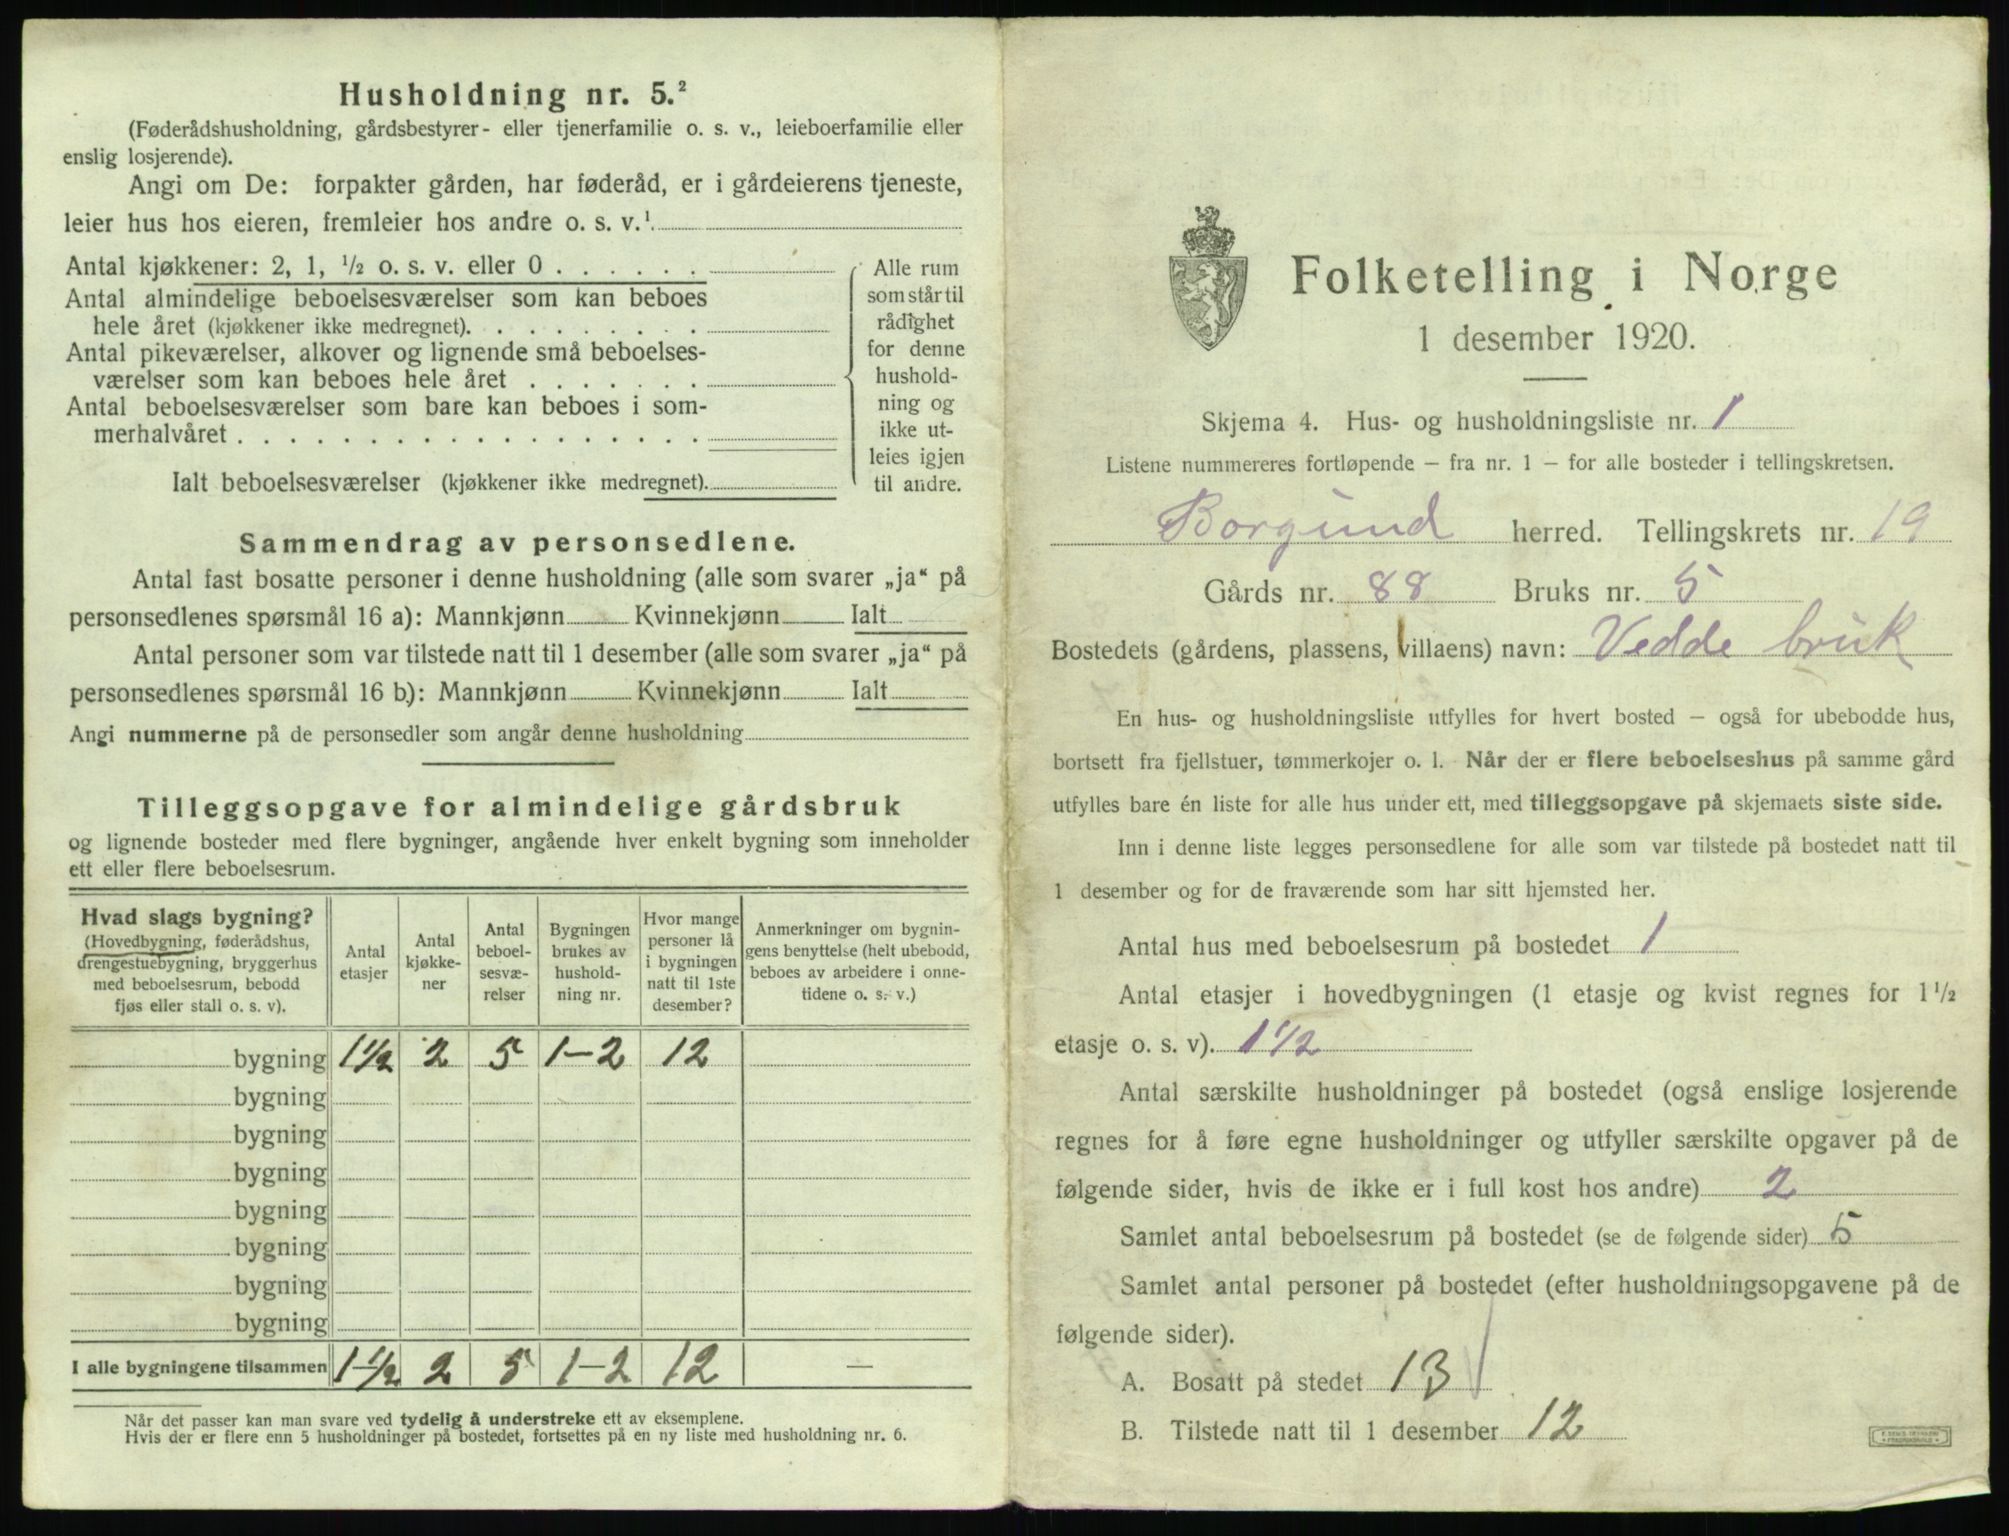 Husholdning nr. 5.²
(Føderådshusholdning, gårdsbestyrer- eller tjenerfamilie o. s. v., leieboerfamilie eller
enslig losjerende).
Angi om De: forpakter gården, har føderåd, er i gårdeierens tjeneste,
leier hus hos eieren, fremleier hos andre o. s. v.¹
Antal kjøkkener: 2, 1, ½ o. s. v. eller 0
Antal almindelige beboelsesværelser som kan beboes
hele året (kjøkkener ikke medregnet).
Antal pikeværelser, alkover og lignende små beboelses-
værelser som kan beboes hele året
Antal beboelsesværelser som bare kan beboes i som-
merhalvåret
Ialt beboelsesværelser (kjøkkener ikke medregnet).
Alle rum
som står til
rådighet
for denne
hushold-
ning og
ikke ut-
leies igjen
til andre.
Sammendrag av personsedlene.
Antal fast bosatte personer i denne husholdning (alle som svarer „ja“ på
personsedlenes spørsmål 16 a): Mannkjønn Kvinnekjønn Ialt
Antal personer som var tilstede natt til 1 desember (alle som svarer „ja“ på
personsedlenes spørsmål 16 b): Mannkjønn Kvinnekjønn Ialt
Angi nummerne på de personsedler som angår denne husholdning
Tilleggsopgave for almindelige gårdsbruk
og lignende bosteder med flere bygninger, angående hver enkelt bygning som inneholder
ett eller flere beboelsesrum.
Hvad slags bygning?
(Hovedbygning, føderådshus,
drengestuebygning, bryggerhus
med beboelsesrum, bebodd
fjøs eller stall o. s. v).
Antal
etasjer
Antal
kjøkke-
ner
Antal
beboel-
sesvæ-
relser
Bygningen
brukes av
hushold-
ning nr.
Hvor mange
personer lå
i bygningen
natt til 1ste
desember?
Anmerkninger om bygnin-
gens benyttelse (helt ubebodd,
beboes av arbeidere i onne-
tidene o. s. v.)
bygning 1½ 2 5 1-2 12
bygning
bygning
bygning
bygning
bygning
bygning
bygning
I alle bygningene tilsammen 1½ 2 5 1-2 12 —
Når det passer kan man svare ved tydelig å understreke ett av eksemplene.
Hvis der er flere enn 5 husholdninger på bostedet, fortsettes på en ny liste med husholdning nr. 6.
Folketelling i Norge
1 desember 1920.
Skjema 4. Hus- og husholdningsliste nr. 1
Listene nummereres fortløpende – fra nr. 1 – for alle bosteder i tellingskretsen.
Borgund herred. Tellingskrets nr. 19
Gårds nr. 88 Bruks nr. 5
Bostedets (gårdens, plassens, villaens) navn: Vedde bruk
En hus- og husholdningsliste utfylles for hvert bosted – også for ubebodde hus,
bortsett fra fjellstuer, tømmerkojer o. l. Når der er flere beboelseshus på samme gård
utfylles bare én liste for alle hus under ett, med tilleggsopgave på skjemaets siste side.
Inn i denne liste legges personsedlene for alle som var tilstede på bostedet natt til
1 desember og for de fraværende som har sitt hjemsted her.
Antal hus med beboelsesrum på bostedet 1
Antal etasjer i hovedbygningen (1 etasje og kvist regnes for 1½
etasje o. s. v). 1½
Antal særskilte husholdninger på bostedet (også enslige losjerende
regnes for å føre egne husholdninger og utfyller særskilte opgaver på de
følgende sider, hvis de ikke er i full kost hos andre) 2
Samlet antal beboelsesrum på bostedet (se de følgende sider) 5
Samlet antal personer på bostedet (efter husholdningsopgavene på de
følgende sider).
A. Bosatt på stedet 13
B. Tilstede natt til 1 desember 12